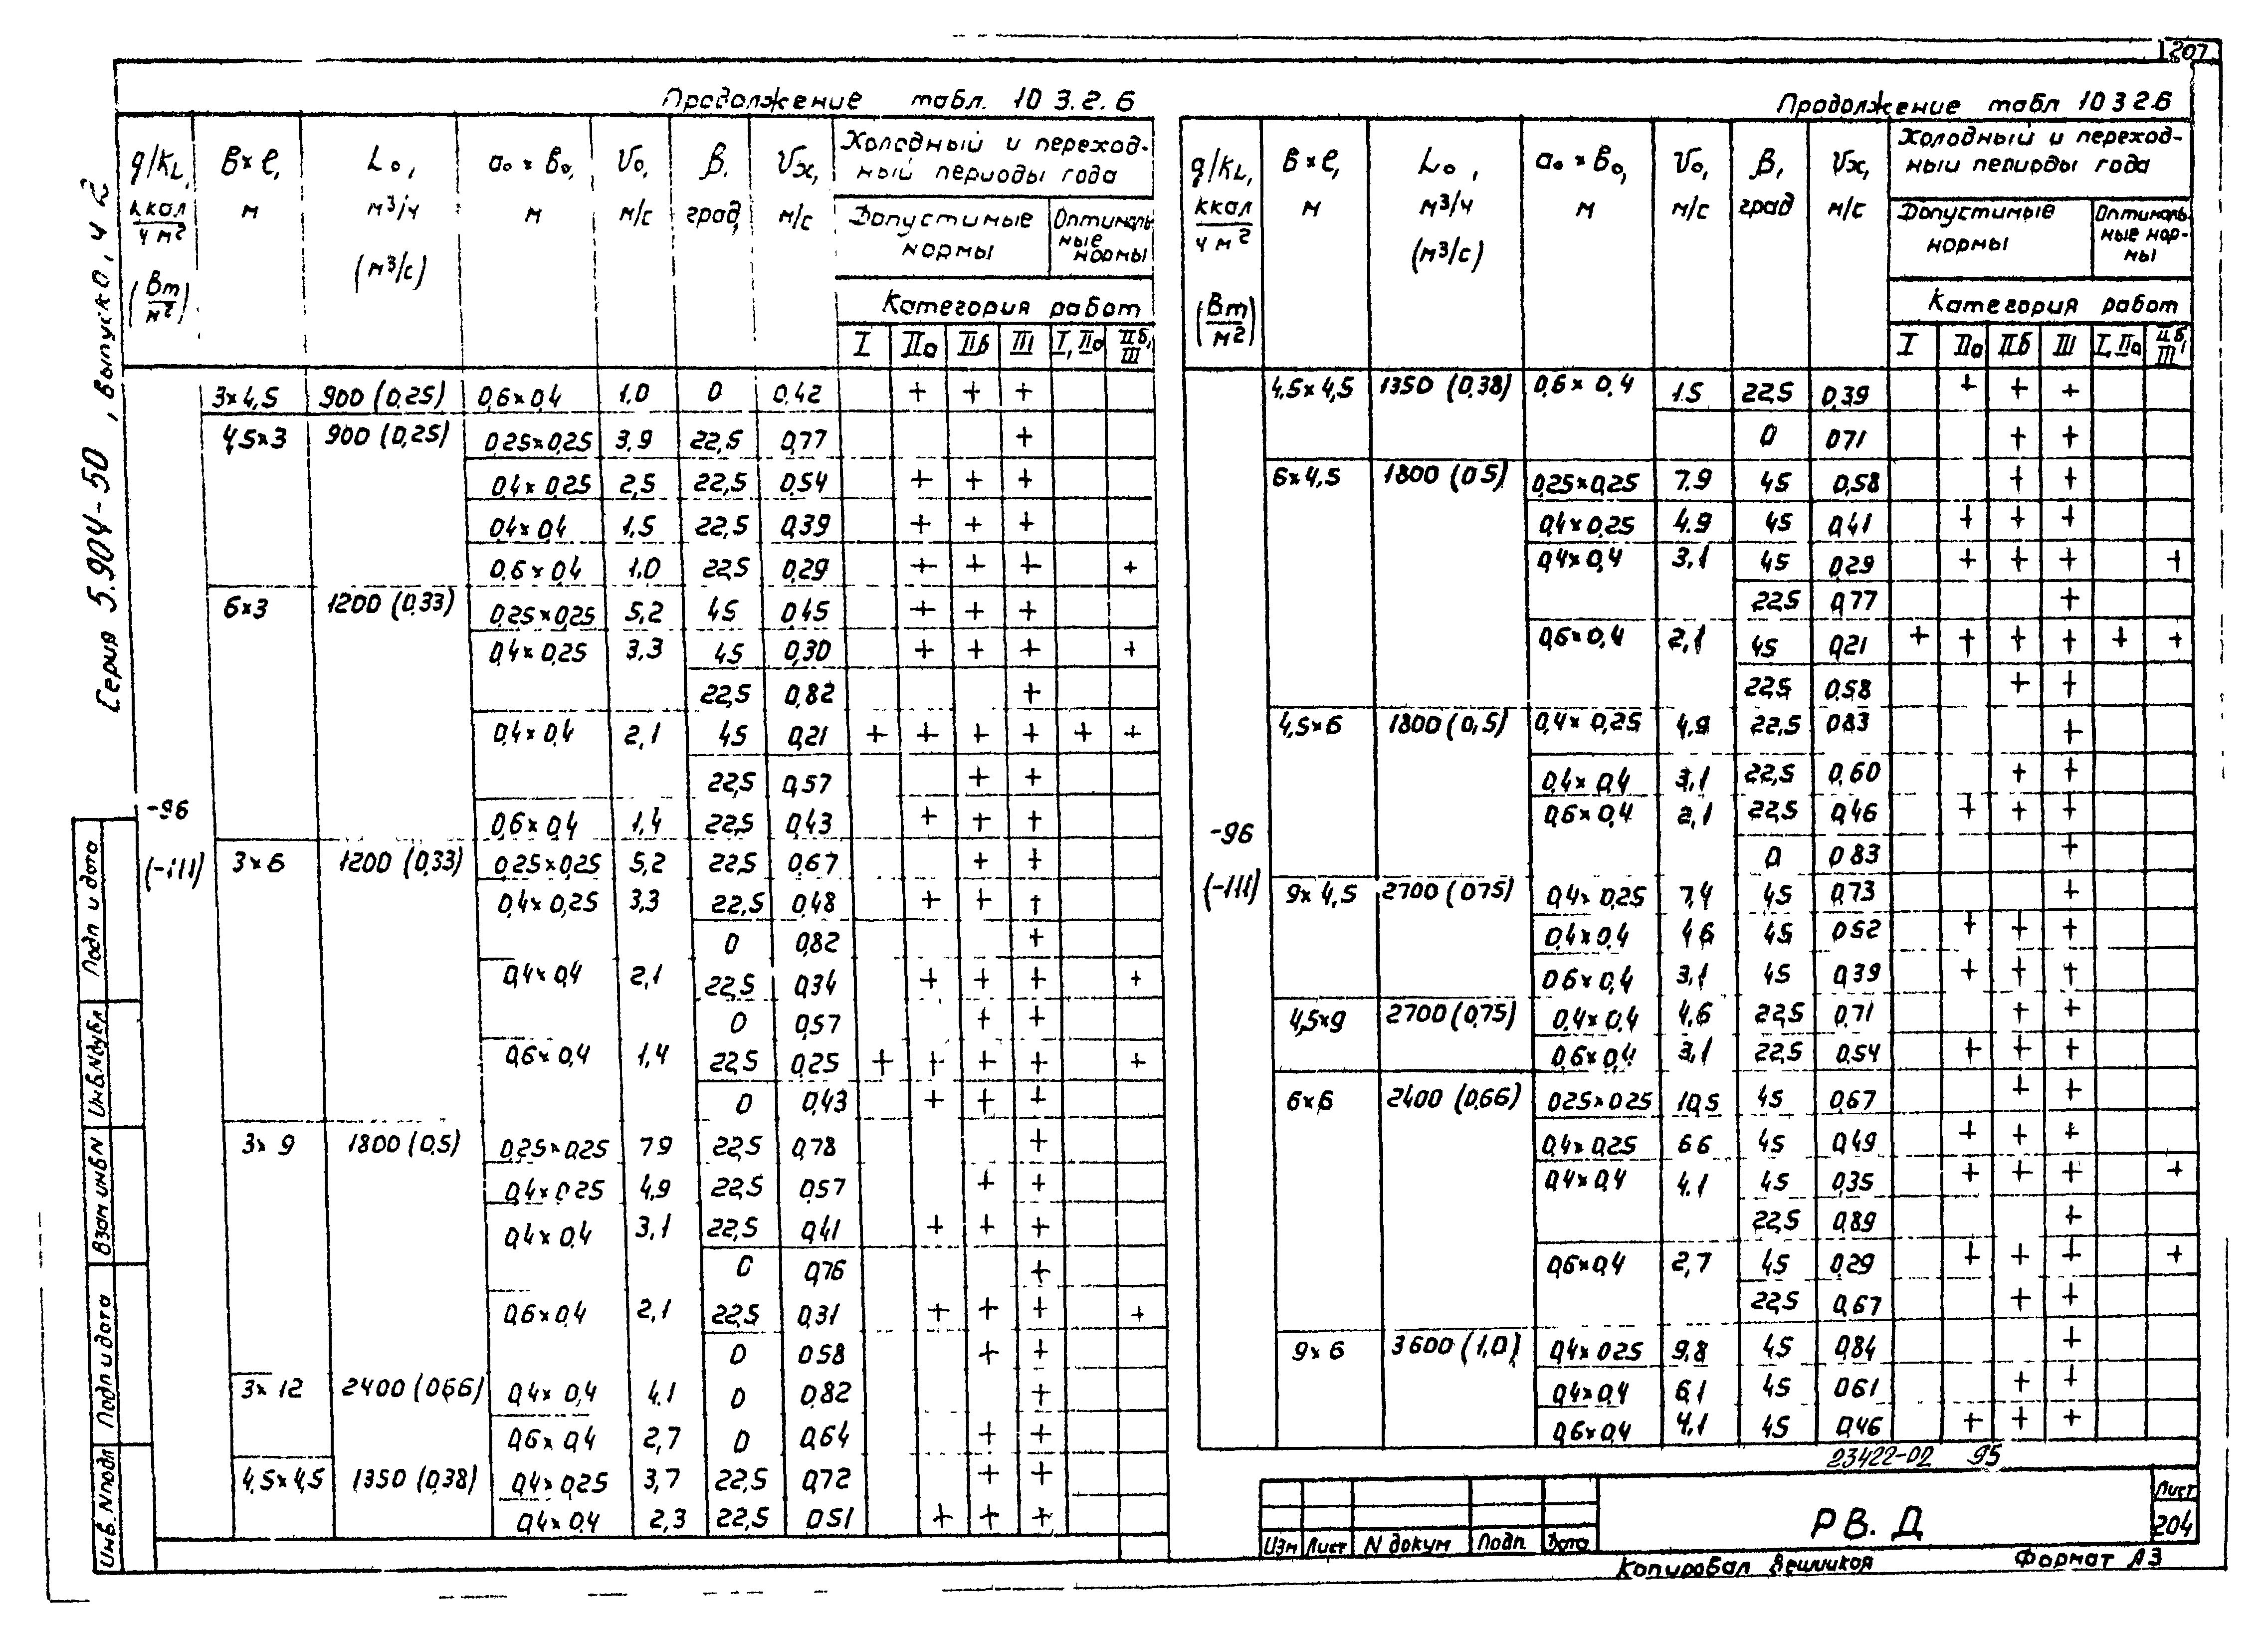 1207
Серия 5.904-50, выпуск 0, ч 2
Продолжение табл. 10 3.2.6
q/KL, ккал/ч м² (Вт/м²) | в×ℓ, м | L₀, м³/ч (м³/с) | a₀×в₀, м | V₀, м/с | β, град, | Vх, м/с | Холодный и переходный периоды года
Допустимые нормы | Оптимальные нормы
Категория работ
I | IIа | IIб | III | I, IIа | IIб, III
-96
(-111)
3×4,5 | 900 (0,25) | 0,6×0,4 | 1.0 | 0 | 0,42 | | + | + | + | |
4,5×3 | 900 (0,25) | 0,25×0,25 | 3,9 | 22,5 | 0,77 | | | | + | |
0,4×0,25 | 2,5 | 22,5 | 0,54 | | + | + | + | |
0,4×0,4 | 1,5 | 22,5 | 0,39 | | + | + | + | |
0,6×0,4 | 1,0 | 22,5 | 0,29 | | + | + | + | | +
6×3 | 1200 (0,33) | 0,25×0,25 | 5,2 | 45 | 0,45 | | + | + | + | |
0,4×0,25 | 3,3 | 45 | 0,30 | | + | + | + | | +
22,5 | 0,82 | | | | + | |
0,4×0,4 | 2,1 | 45 | 0,21 | + | + | + | + | + | +
22,5 | 0,57 | | | + | + | |
0,6×0,4 | 1,4 | 22,5 | 0,43 | | + | + | + | |
3×6 | 1200 (0,33) | 0,25×0,25 | 5,2 | 22,5 | 0,67 | | | + | + | |
0,4×0,25 | 3,3 | 22,5 | 0,48 | | + | + | + | |
0 | 0,82 | | | | + | |
0,4×0,4 | 2,1 | 22,5 | 0,34 | | + | + | + | | +
0 | 0,57 | | | + | + | |
0,6×0,4 | 1,4 | 22,5 | 0,25 | + | + | + | + | | +
0 | 0,43 | | + | + | + | |
3×9 | 1800 (0,5) | 0,25×0,25 | 7.9 | 22,5 | 0,78 | | | | + | |
0,4×0,25 | 4,9 | 22,5 | 0,57 | | | + | + | |
0,4×0,4 | 3,1 | 22,5 | 0,41 | | + | + | + | |
0 | 0,76 | | | | + | |
0,6×0,4 | 2,1 | 22,5 | 0,31 | | + | + | + | | +
0 | 0.58 | | | + | + | |
3×12 | 2400 (0,66) | 0,4×0,4 | 4.1 | 0 | 0,82 | | | | + | |
0,6×0,4 | 2,7 | 0 | 0,64 | | | + | + | |
4,5×4,5 | 1350 (0,38) | 0,4×0,25 | 3,7 | 22,5 | 0,72 | | | + | + | |
0,4×0,4 | 2,3 | 22,5 | 0,51 | | + | + | + | |
Продолжение табл 10 3 2.6
q/KL, ккал/ч м² (Вт/м²) | в×ℓ, м | L₀, м³/ч (м³/с) | a₀×в₀, м | V₀, м/с | β, град | Vх, м/с | Холодный и переходный периоды года
Допустимые нормы | Оптимальные нормы
Категория работ
I | IIа | IIб | III | I, IIа | IIб, III
-96
(-111)
4,5×4,5 | 1350 (0,38) | 0,6×0,4 | 1.5 | 22,5 | 0,39 | | + | + | + | |
0 | 0,71 | | | + | + | |
6×4,5 | 1800 (0,5) | 0,25×0,25 | 7.9 | 45 | 0,58 | | | + | + | |
0,4×0,25 | 4.9 | 45 | 0,41 | | + | + | + | |
0,4×0,4 | 3,1 | 45 | 0,29 | | + | + | + | | +
22,5 | 0,77 | | | | + | |
0,6×0,4 | 2,1 | 45 | 0,21 | + | + | + | + | + | +
22,5 | 0,58 | | | + | + | |
4,5×6 | 1800 (0,5) | 0,4×0,25 | 4,9 | 22,5 | 0,83 | | | | + | |
0,4×0,4 | 3,1 | 22,5 | 0,60 | | | + | + | |
0,6×0,4 | 2,1 | 22,5 | 0,46 | | + | + | + | |
0 | 0,83 | | | | + | |
9×4,5 | 2700 (0,75) | 0,4×0,25 | 7,4 | 45 | 0,73 | | | | + | |
0,4×0,4 | 4,6 | 45 | 0,52 | | + | + | + | |
0,6×0,4 | 3,1 | 45 | 0,39 | | + | + | + | |
4,5×9 | 2700 (0,75) | 0,4×0,4 | 4,6 | 22,5 | 0,71 | | | + | + | |
0,6×0,4 | 3,1 | 22,5 | 0,54 | | + | + | + | |
6×6 | 2400 (0,66) | 0,25×0,25 | 10,5 | 45 | 0,67 | | | + | + | |
0,4×0,25 | 6,6 | 45 | 0,49 | | + | + | + | |
0,4×0,4 | 4.1 | 45 | 0,35 | | + | + | + | | +
22,5 | 0,89 | | | | + | |
0,6×0,4 | 2,7 | 45 | 0,29 | | + | + | + | | +
22,5 | 0,67 | | | + | + | |
9×6 | 3600 (1,0) | 0,4×0,25 | 9,8 | 45 | 0,84 | | | | + | |
0,4×0,4 | 6,1 | 45 | 0,61 | | | + | + | |
0,6×0,4 | 4,1 | 45 | 0,46 | | + | + | + | |
23422-02 95
Изм Лист N докум Подп. Дата
РВ. Д
Лист
204
Копировал Вешникоя Формат А3
Подп и дата
Инв.Nдубл
Взам инв N
Подп и дата
Инв. N подл